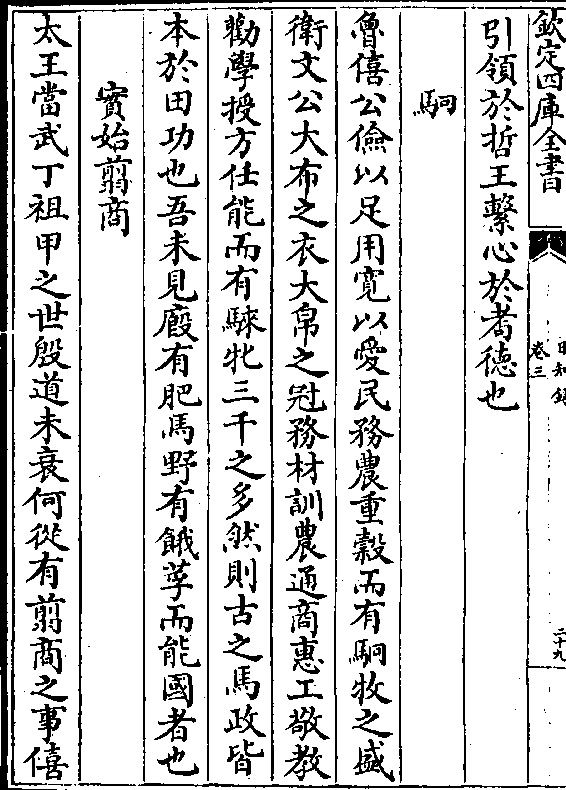 欽定四庫全書
日知録
卷三
二十九
引領於哲王繫心於耆德也
駉
魯僖公儉以足用寬以愛民務農重穀而有駉牧之盛
衛文公大布之衣大帛之冠務材訓農通商惠工敬教
勸學授方任能而有騋牝三千之多然則古之馬政皆
本於田功也吾未見廐有肥馬野有餓莩而能國者也
實始翦商
太王當武丁祖甲之世殷道未衰何從有翦商之事僖